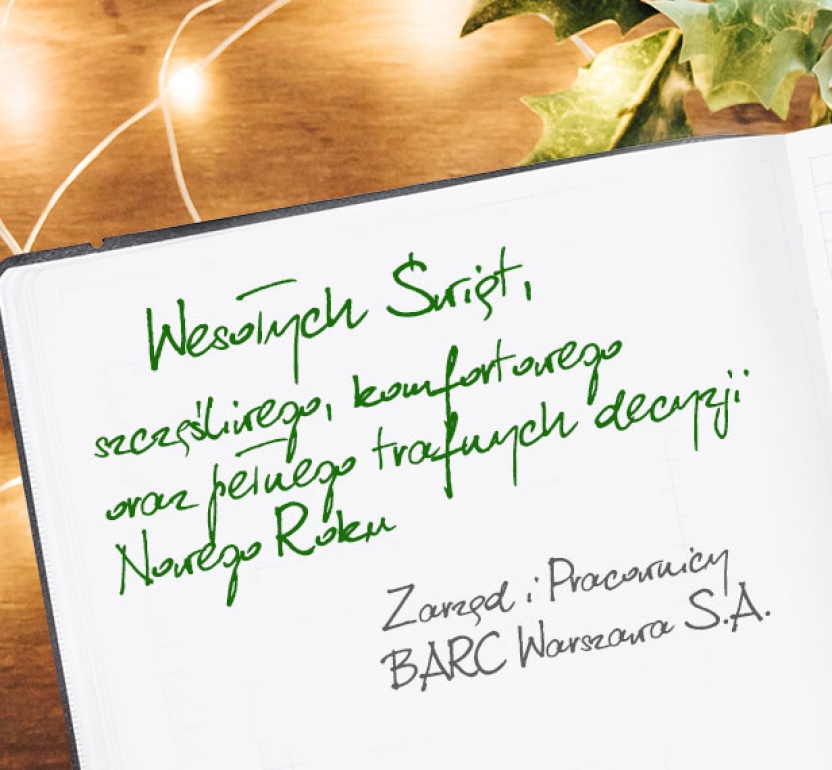 Wesołych Świąt,
szczęśliwego, komfortowego
oraz pełnego trafnych decyzji
Nowego Roku
Zarząd i Pracownicy
BARC Warszawa S.A.